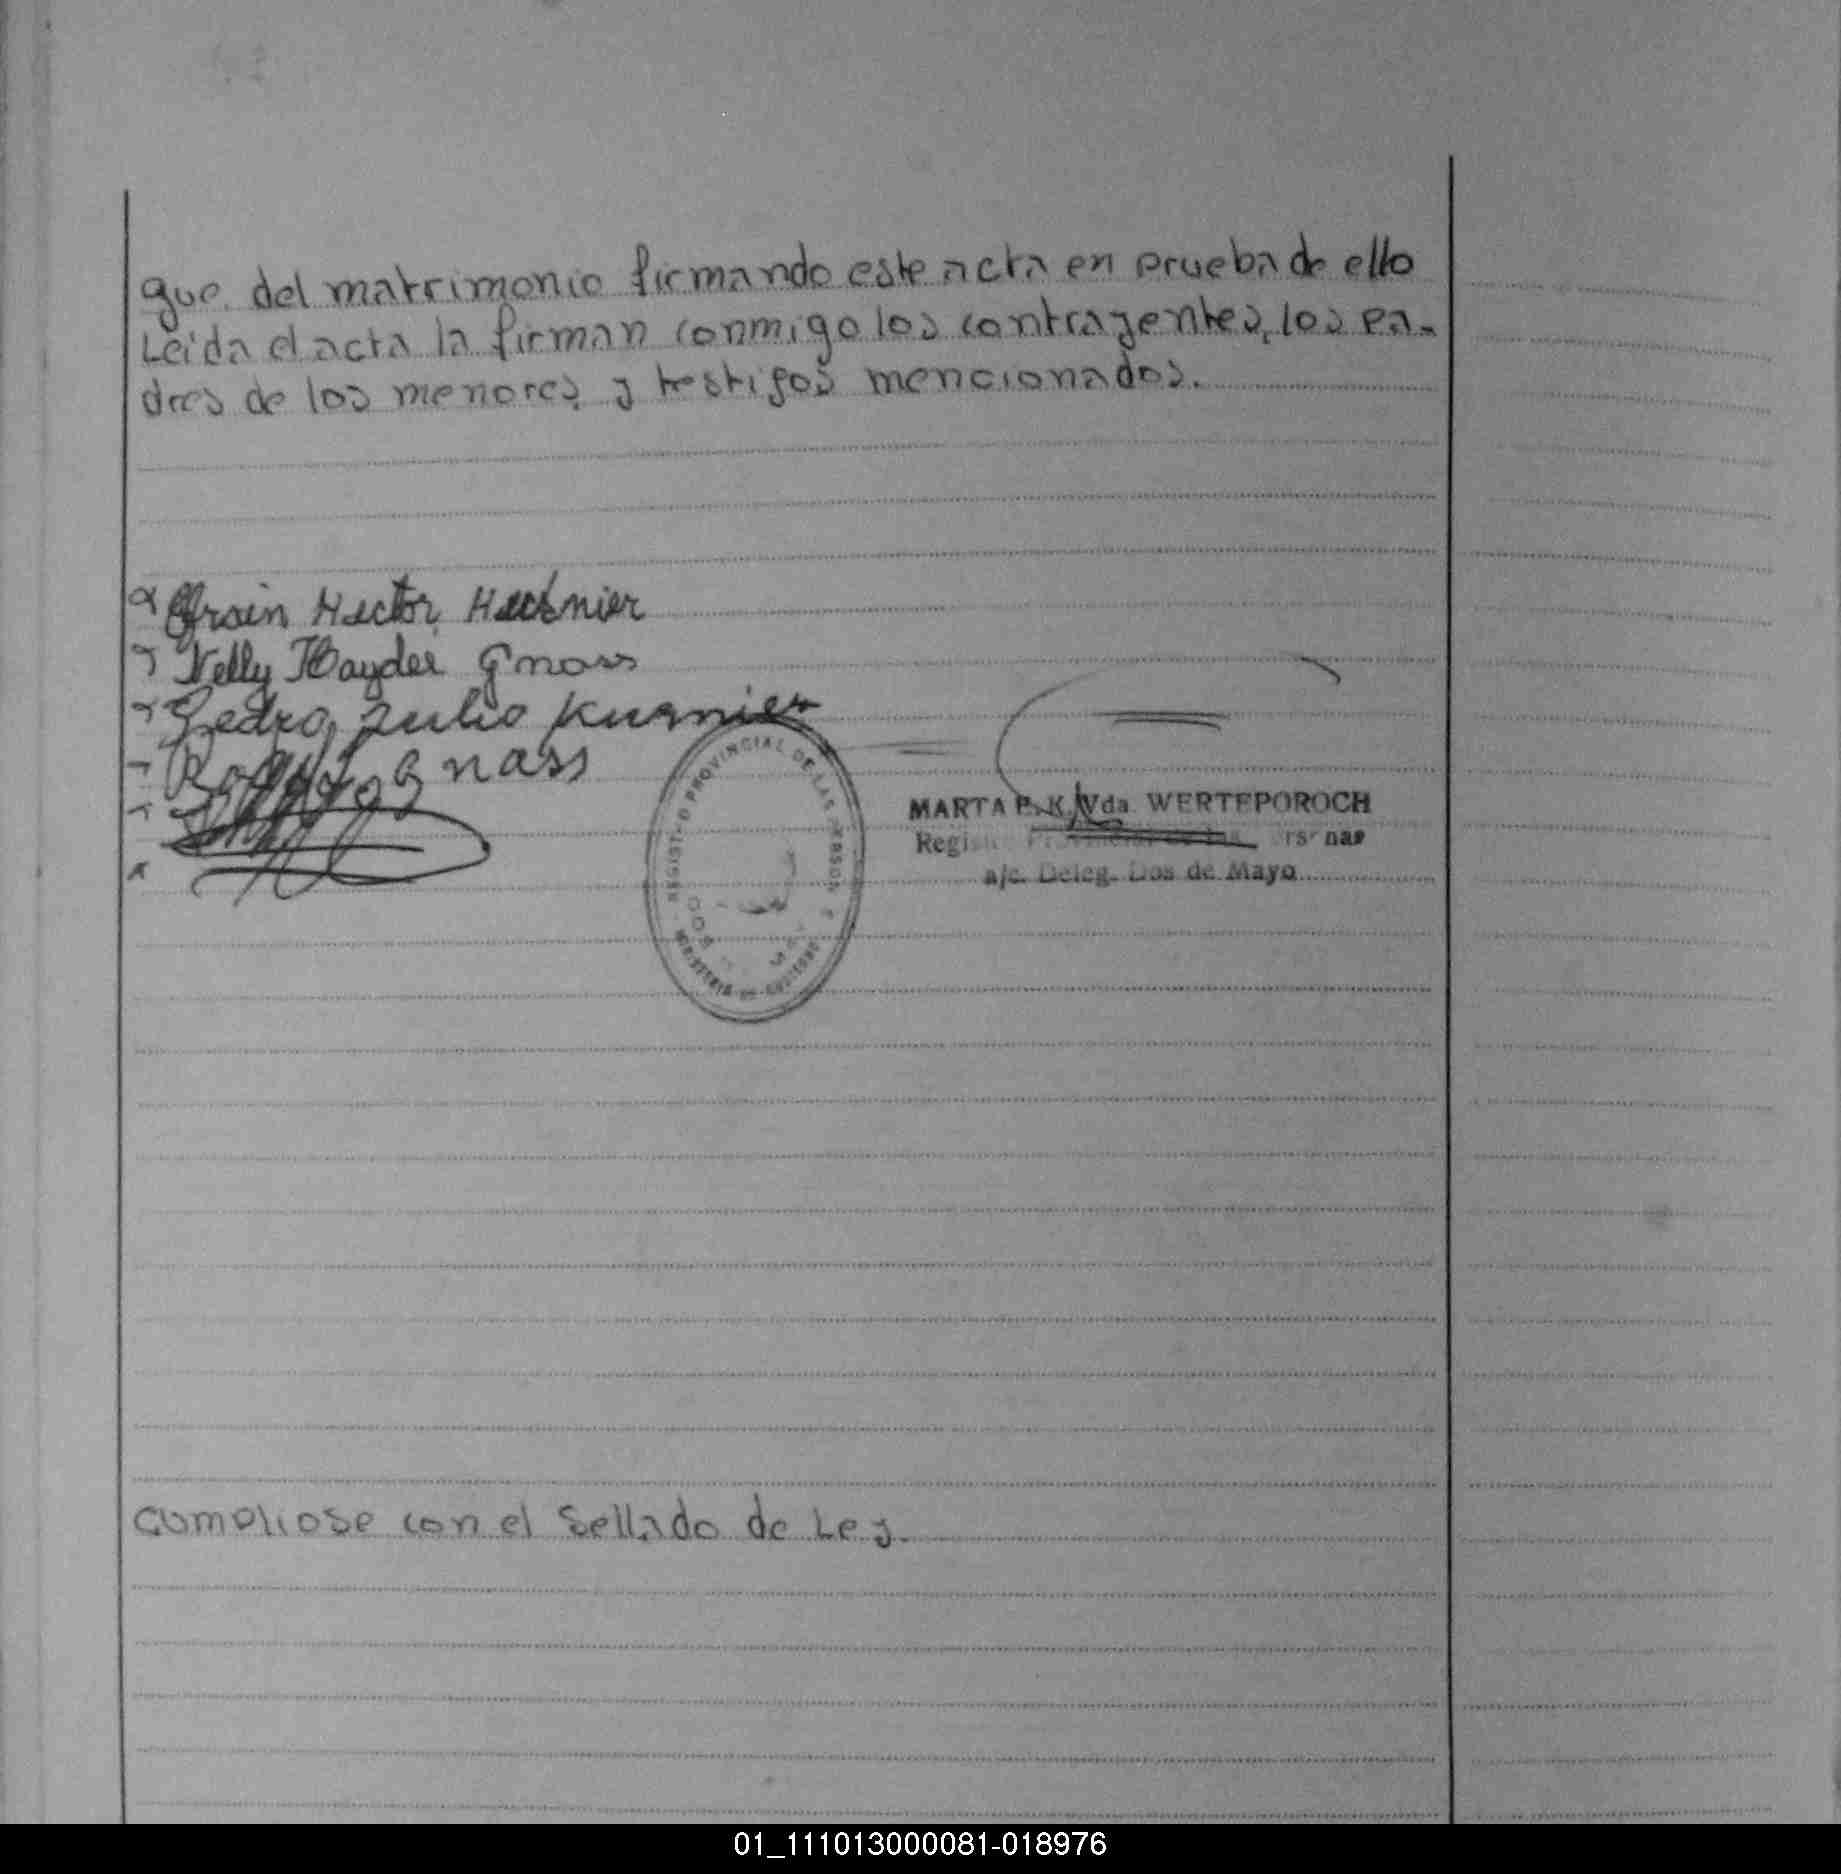 que del matrimonio firmando este acta en prueba de ello
Leida el acta la firman conmigo los contrayentes, los pa-
dres de los menores y testigos mencionados.
Efrain Hector Hecknier
Nelly Hayder Gnass
Pedro Julio Kusnier
Rodolfo Gnass
REGISTRO PROVINCIAL DE LAS PERSONAS
MINISTERIO DE GOBIERNO
DOS MAYO
MARTA P. K. Vda. WERTEPOROCH
Registro Provincial de las Personas
a/c. Deleg. Dos de Mayo
Cumpliose con el Sellado de Ley.
01_111013000081-018976